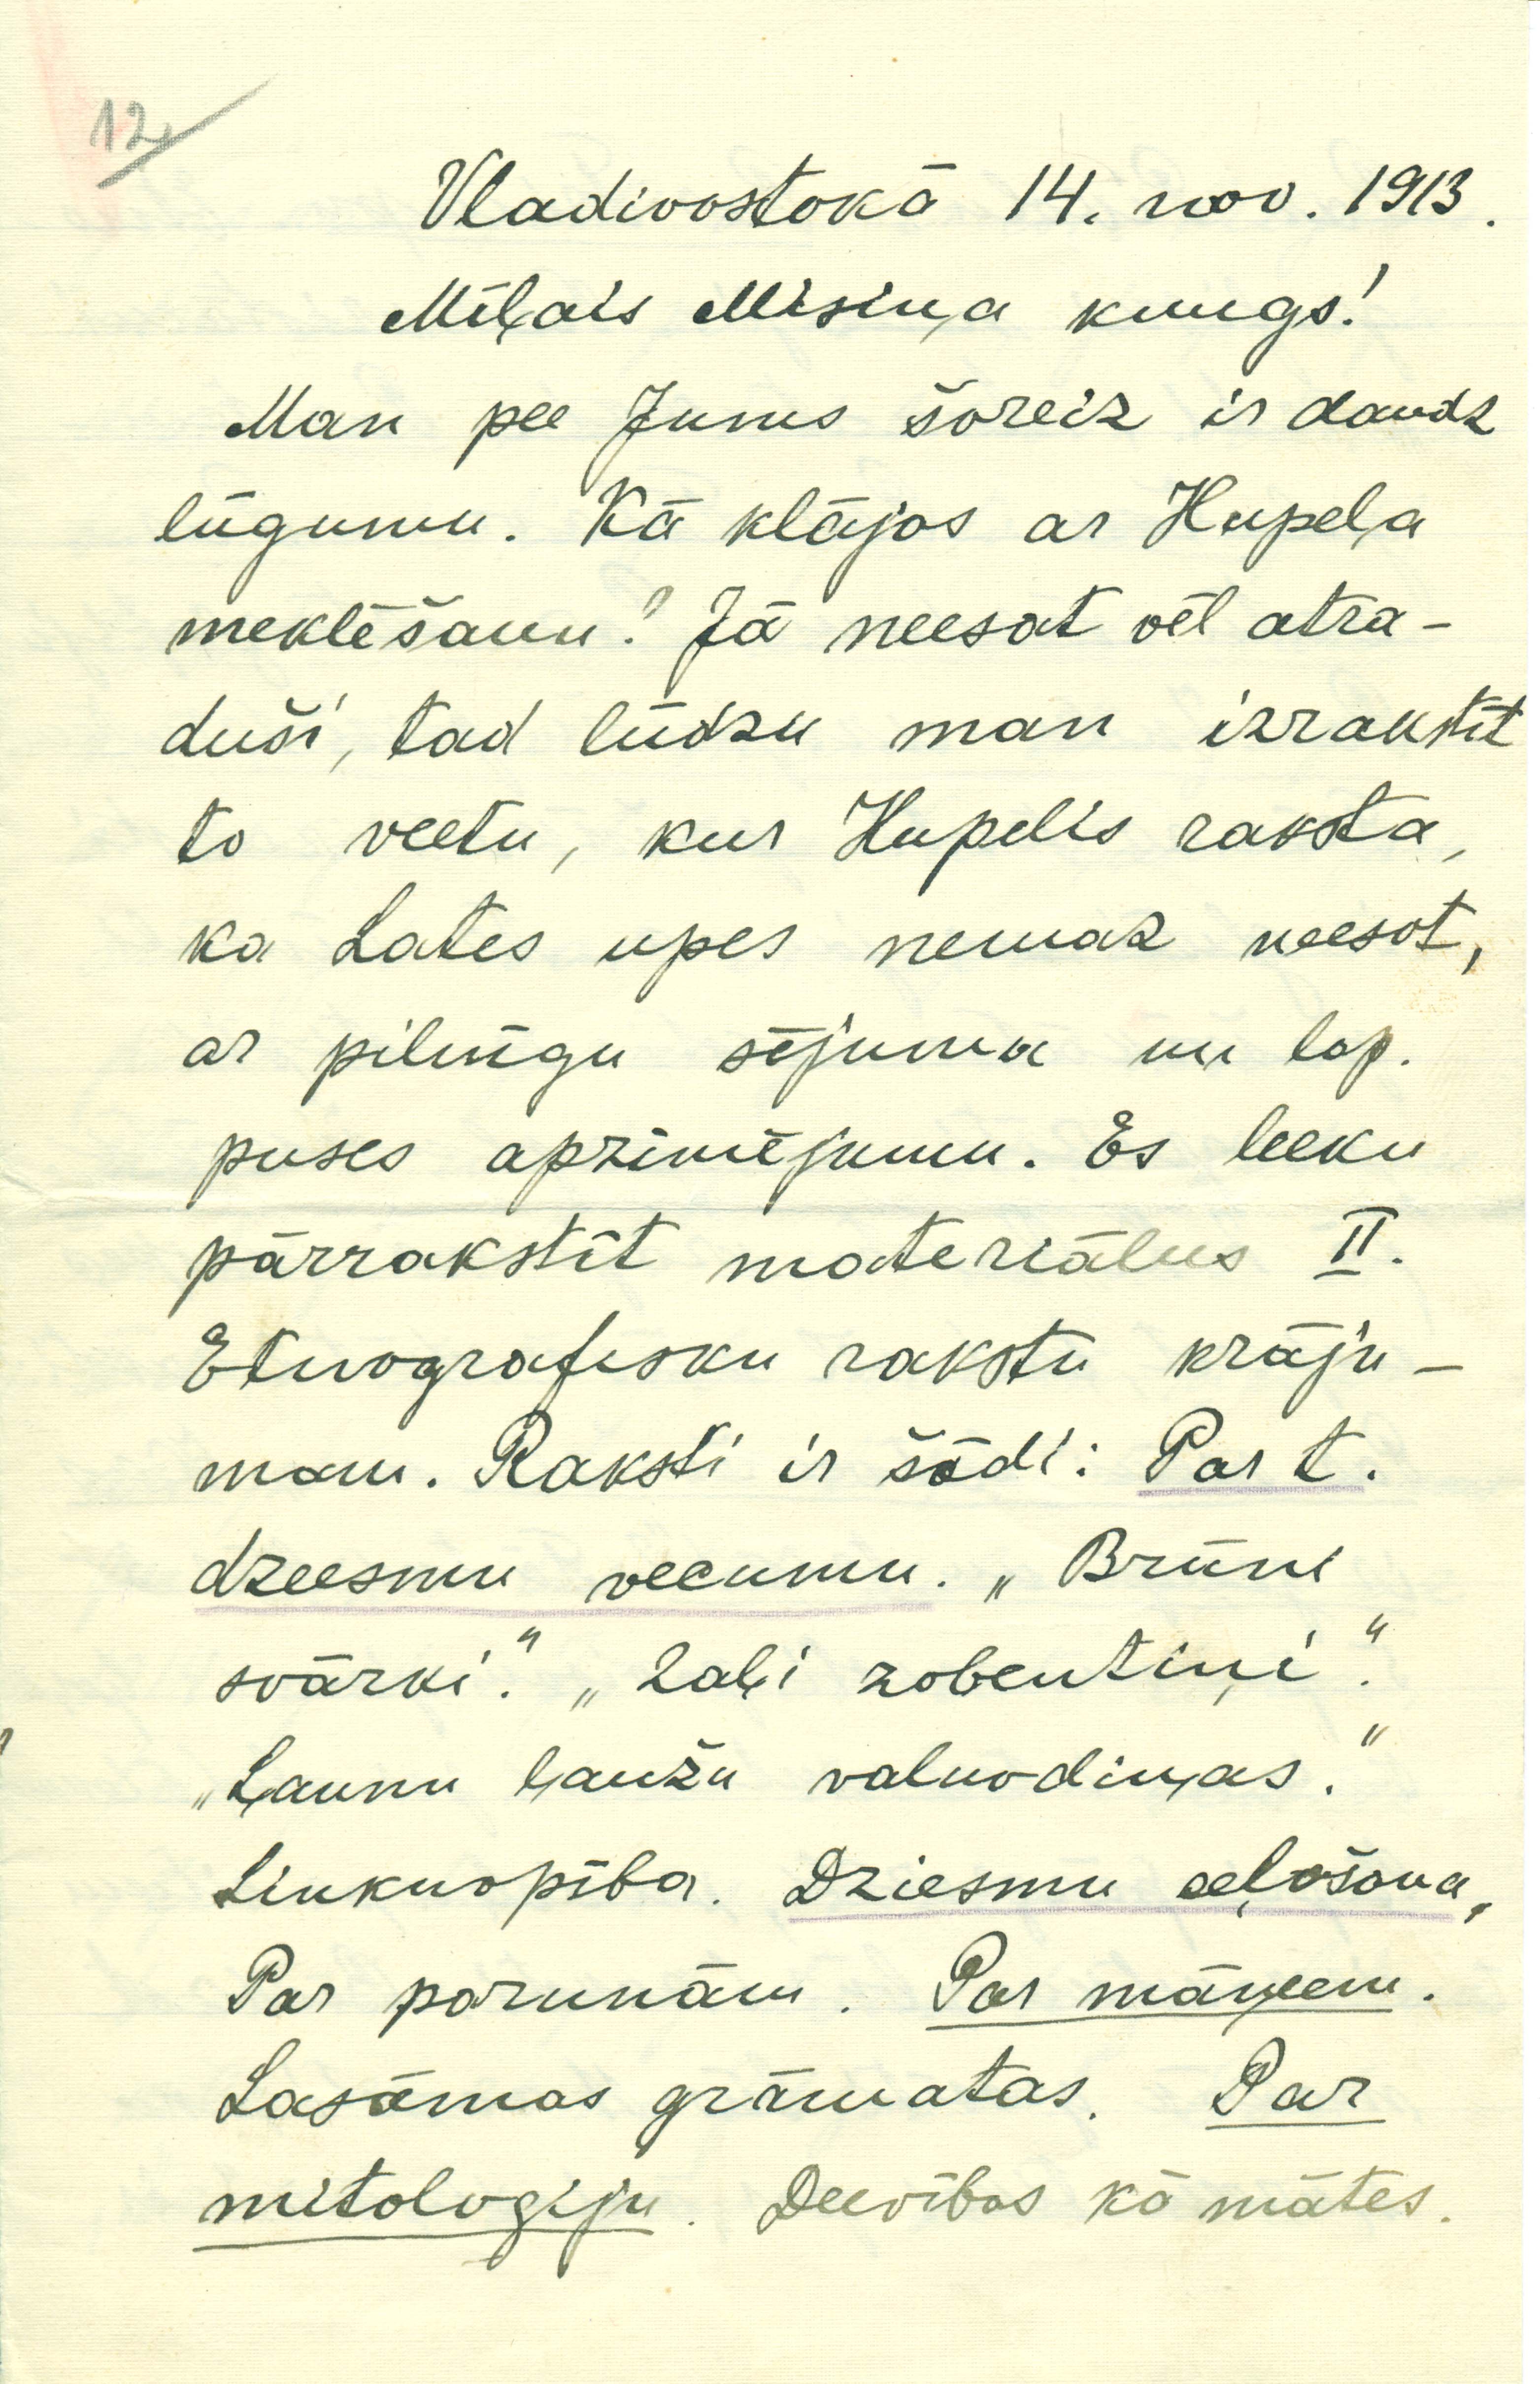 12,
Vladivostokā 14. nov. 1913.
Mīļais Misiņa kungs!
Man pee Jums šoreiz ir daudz
lūgumu. Kā klājos ar Hupeļa
meklēšanu? Jā neesat vēl atra-
duši, tad lūdzu man izrakstīt
to veetu, kur Hupelis raksta,
ka Lates upes nemaz neesot,
ar pilnīgu sējuma un lap.
puses apzimējumu. Es leeku
pārrakstīt materiālus II.
Etnografisku rakstu krāju-
mam. Raksti ir šādi: Par t.
dzeesmu vecumu. „Brūni
svārki." „Zaļi zobentiņi".
„Ļaunu ļaužu valuodiņas."
Linkuopība. Dziesmu eeļošana,
Par parunām. Par māņeem.
Lasāmas grāmatas. Par
mitologiju. Deevības kā mātes.